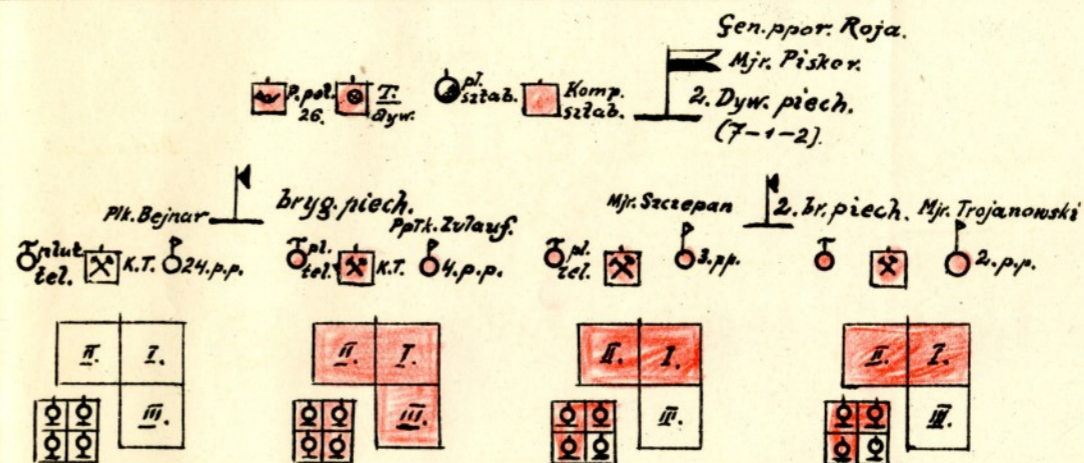 Gen. ppor. Roja.
Mjr. Piskor.
2. Dyw. piech.
(7-1-2).
P. pol. 26.
T. Dyw.
pl. sztab.
Komp. sztab.
Plk. Bejnar
bryg. piech.
Ppłk. Zulauf.
Mjr. Szczepan
2. br. piech.
Mjr. Trojanowski
plut. tel.
K.T.
24. p.p.
pl. tel.
K.T.
4. p.p.
pl. tel.
3. pp.
2. p.p.
II. I.
II. I.
II. I.
II. I.
III.
III.
III.
III.